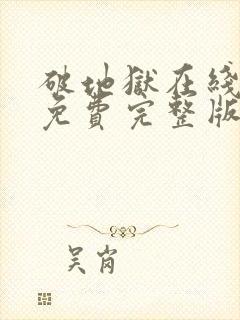 破地獄在綫
免費完整版
吴岗